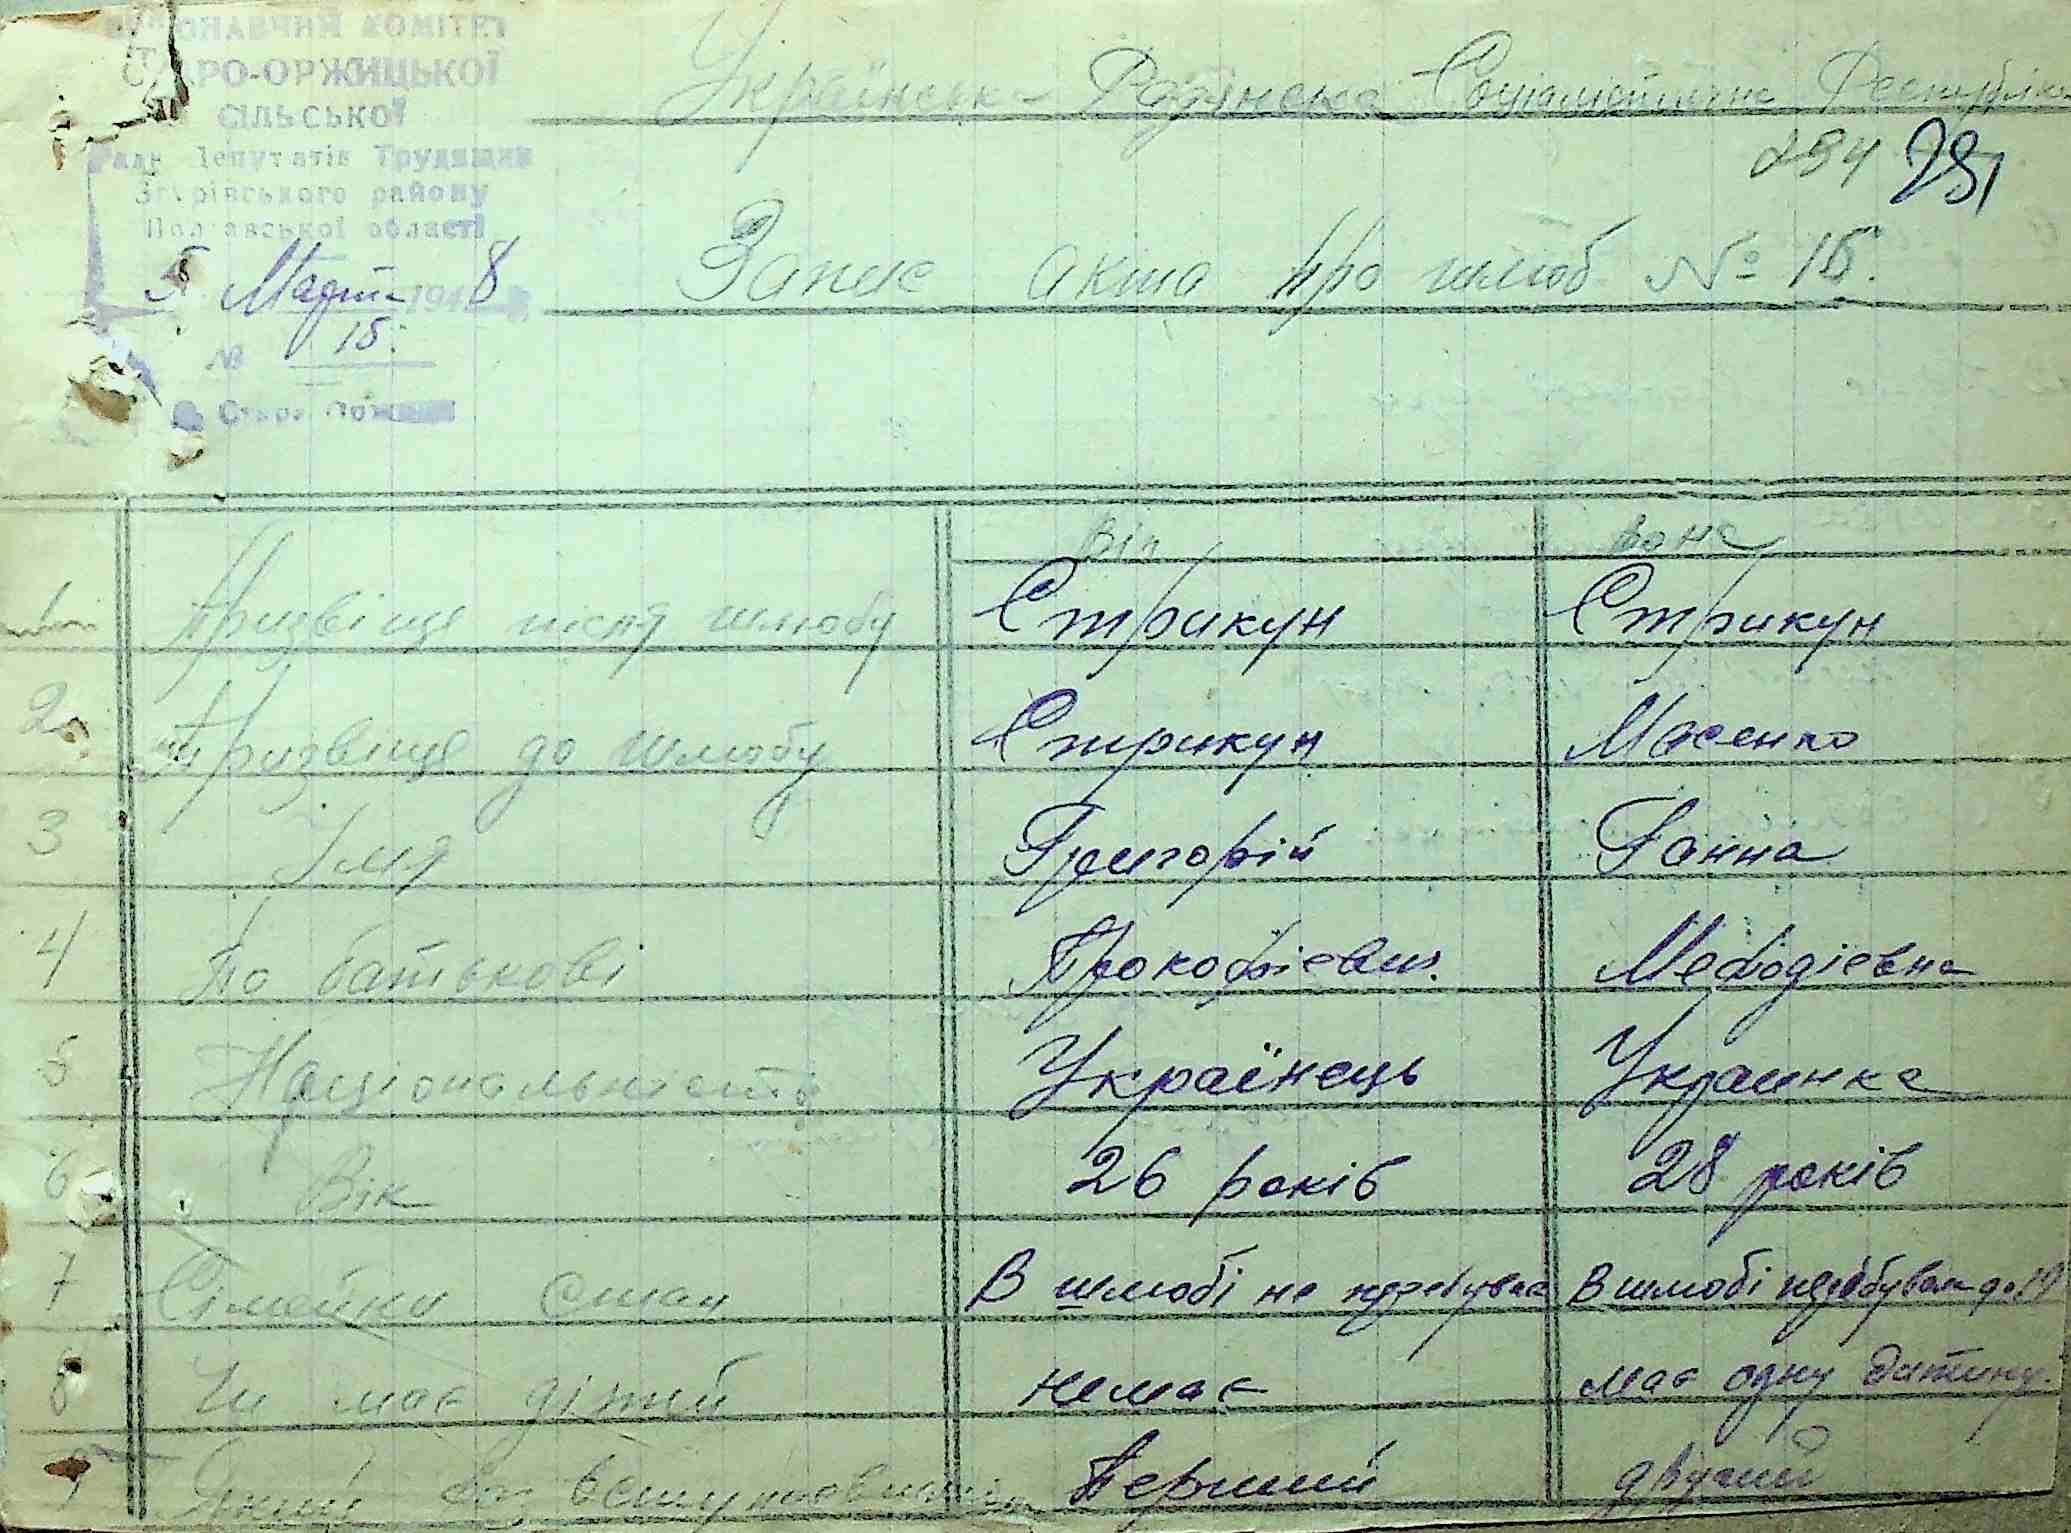 ВИКОНАВЧИЙ КОМІТЕТ
СТАРО-ОРЖИЦЬКОЇ
СІЛЬСЬКОЇ
Ради Депутатів Трудящих
Згурівського району
Полтавської області
5 Март 1948
№ 15.
с. Стара Оржиця
Українська Радянська Соціалістична Республіка
294 291
Запис акта про шлюб № 15.
Він Вона
1 Призвіще після шлюбу Стрикун Стрикун
2 Призвіще до шлюбу Стрикун Масенко
3 Імя Григорій Ганна
4 По батькові Прокофієвич. Мефодіевна
5 Національність Українець Украинка
6 Вік 26 років 28 років
7 Сімейни стан В шлюбі не перебував В шлюбі перебувала до 19
8 Чи має дітей немає має одну дитину.
9 Який раз Перший другий